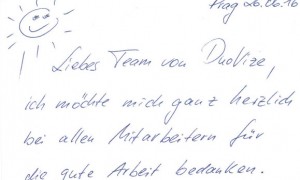 Prag 26.06.16
Liebes Team von DuoVize,
ich möchte mich ganz herzlich
bei allen Mitarbeitern für
die gute Arbeit bedanken.